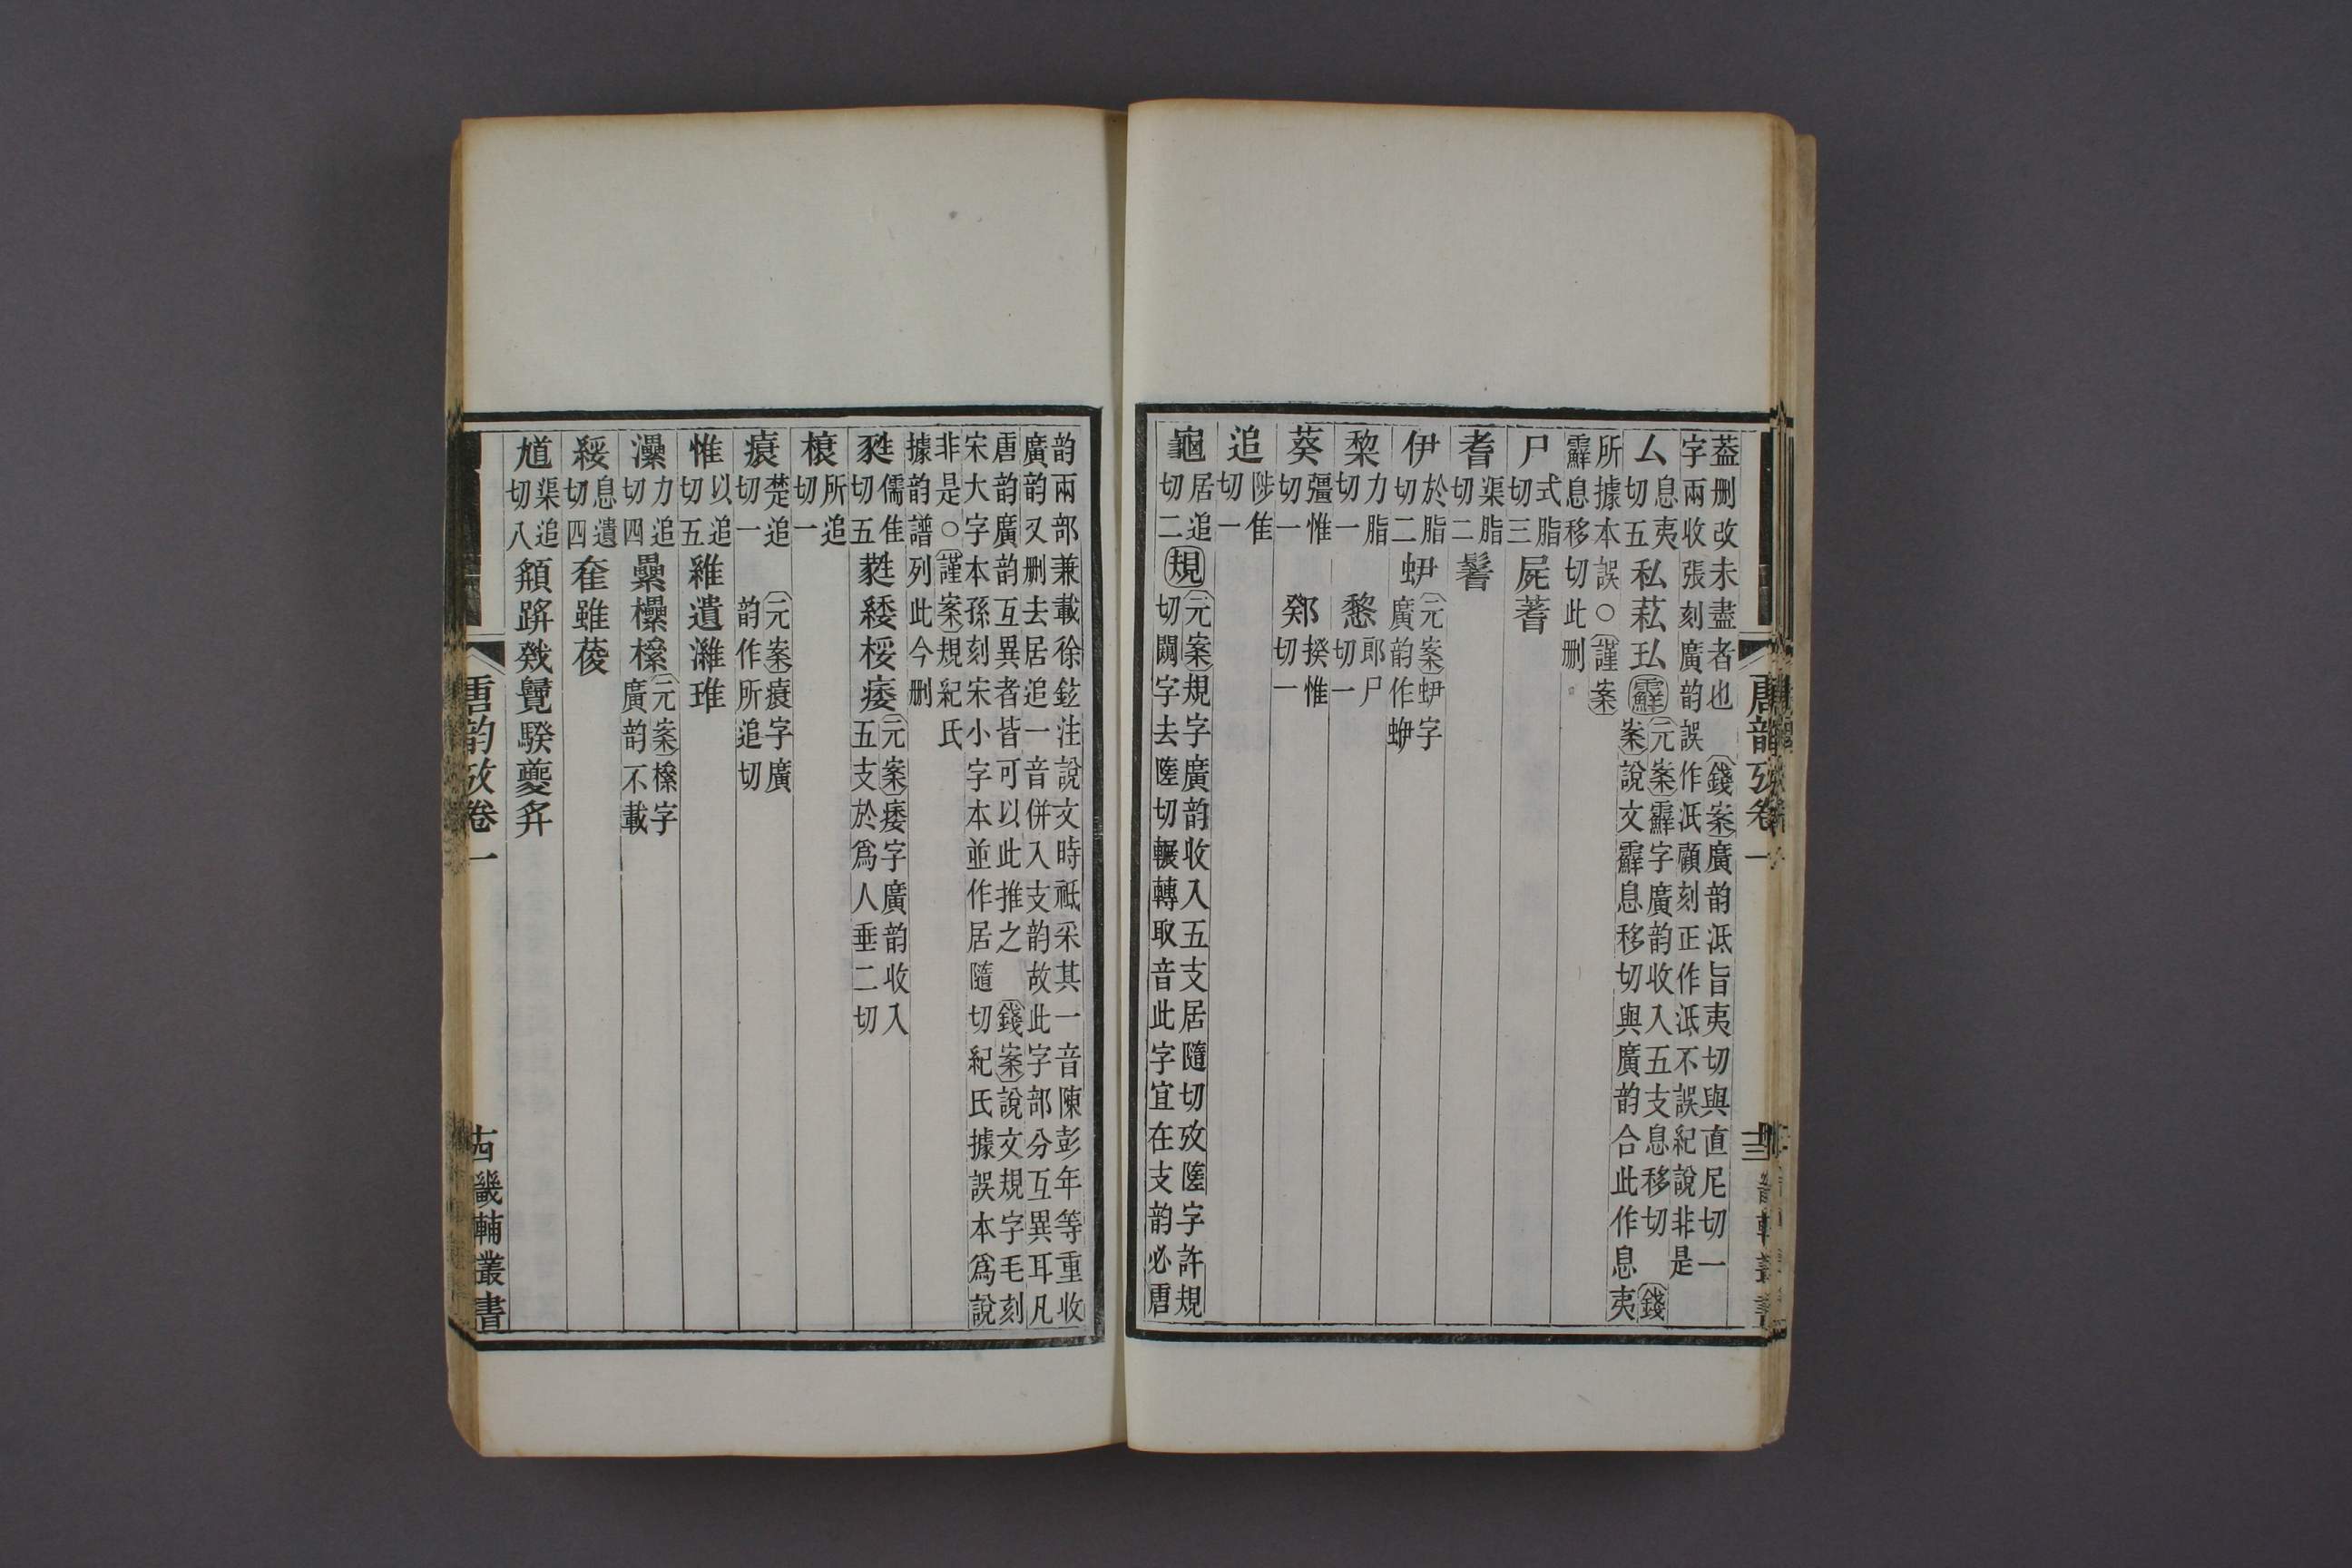 葢刪改未盡者也 錢案廣韵泜旨夷切與直尼切一
字兩收張刻廣韵誤作泜顧刻正作泜不誤紀說非是
厶息夷切五私菘玜䨘元案䨘字廣韵收入五支息移切 錢
案說文䨘息移切與廣韵合此作息夷
所據本誤○謹案
䨘息移切此刪
尸式脂切三屍蓍
耆渠脂切二鬐
伊於脂切二蛜元案蛜字
廣韵作蛜
棃力脂切一 𢤂郎尸切一
葵彊惟切一 鄈揆惟切一
追陟隹切一
龜居追切二規元案規字廣韵收入五支居隨切攷隓字許規
切闕字去隓切輾轉取音此字宜在支韵必唐
唐韵攷卷一
韵兩部兼載徐鉉注說文時祗采其一音陳彭年等重收
廣韵又刪去居追一音併入支韵故此字部分互異耳凡
唐韵廣韵互異者皆可以此推之 錢案說文規字毛刻
宋大字本孫刻宋小字本並作居隨切紀氏據誤本爲說
非是○謹案規紀氏
據韵譜列此今刪
甤儒隹切五蕤緌桵痿元案痿字廣韵收入
五支於爲人垂二切
榱所追切一
㾽楚追切一 元案㾽字廣
韵作所追切
惟以追切五維遺濰琟
灅力追切四纍欙樏元案樏字
廣韵不載
綏息遺切四奞雖葰
馗渠追切八頯跻戣䳫騤夔弁
唐韵攷卷一
古 畿輔叢書